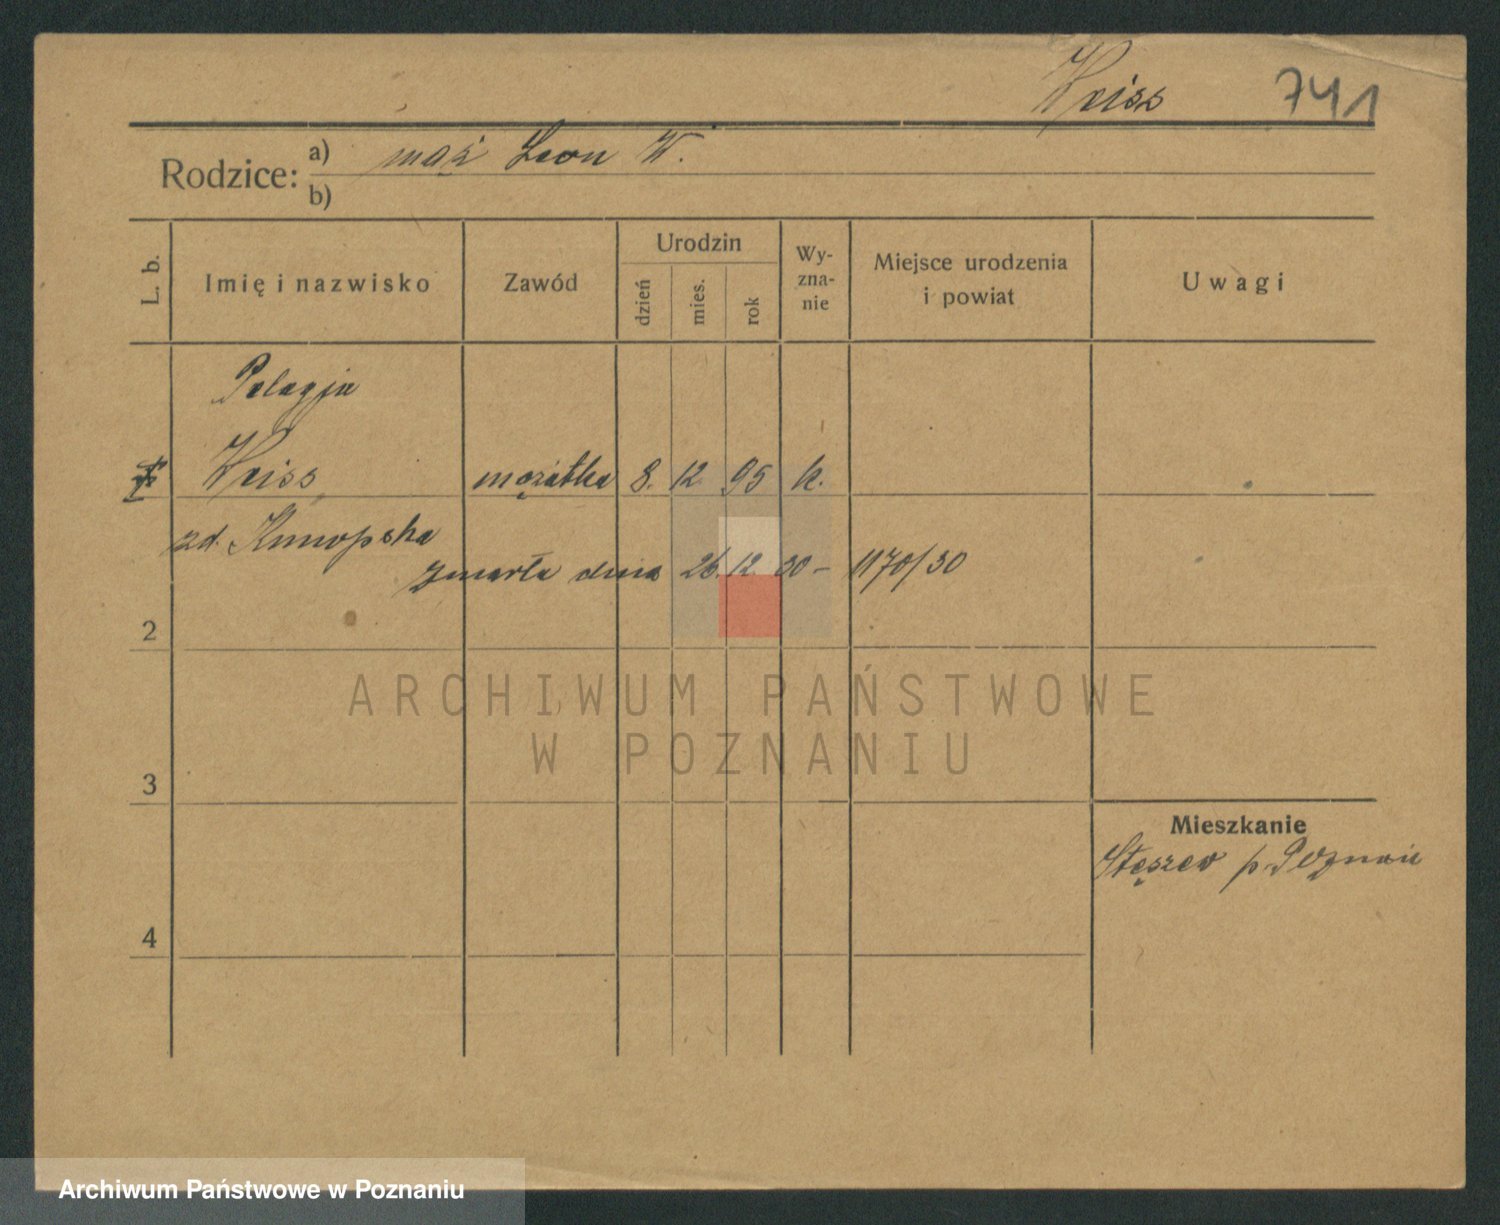 Weiss 741
Rodzice: a) mąż Leon W.
b)
L. b.
Imię i nazwisko
Zawód
Urodzin
dzień
mies.
rok
Wy-
zna-
nie
Miejsce urodzenia
i powiat
Uwagi
Pelagja
Weiss mężatka 8. 12 95 k.
zd. Knwopska
zmarła dnia 26. 12. 30 – 1170/30
2
ARCHIWUM PAŃSTWOWE
W POZNANIU
3
Mieszkanie
Stęszew p. Poznań
4
Archiwum Państwowe w Poznaniu